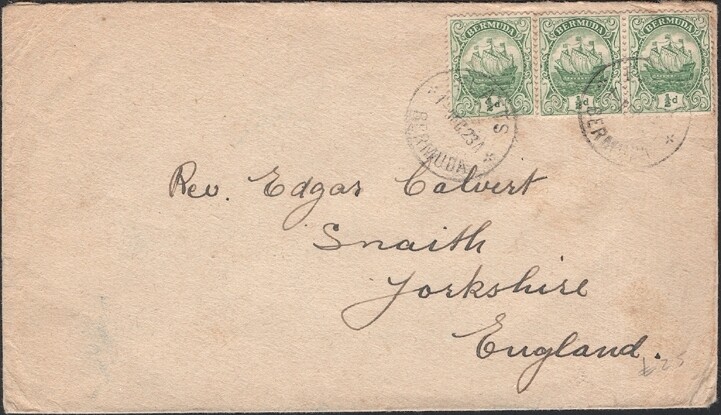 BERMUDA BERMUDA BERMUDA
½d ½d ½d
BERMUDA
BERMUDA
Rev. Edgar Calvert
Snaith
Yorkshire
England.
£25